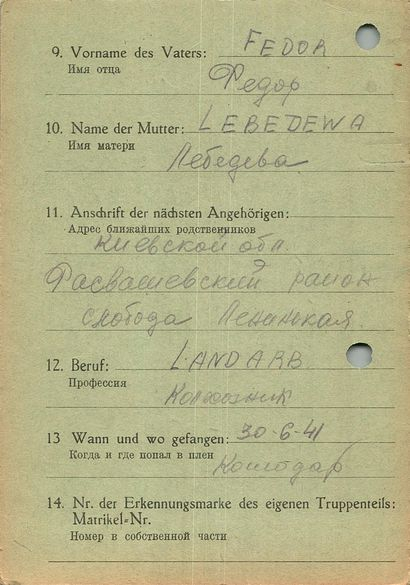 9. Vorname des Vaters: FEDOR
Имя отца
Федор
10. Name der Mutter: LEBEDEWA
Имя матери
Лебедева
11. Anschrift der nächsten Angehörigen:
Адрес ближайших родственников
Киевской обл.
район
слобода Ленинская
12. Beruf: LANDARB.
Профессия
Колхозник
13 Wann und wo gefangen: 30-6-41
Когда и где попал в плен
14. Nr. der Erkennungsmarke des eigenen Truppenteils:
Matrikel-Nr.
Номер в собственной части